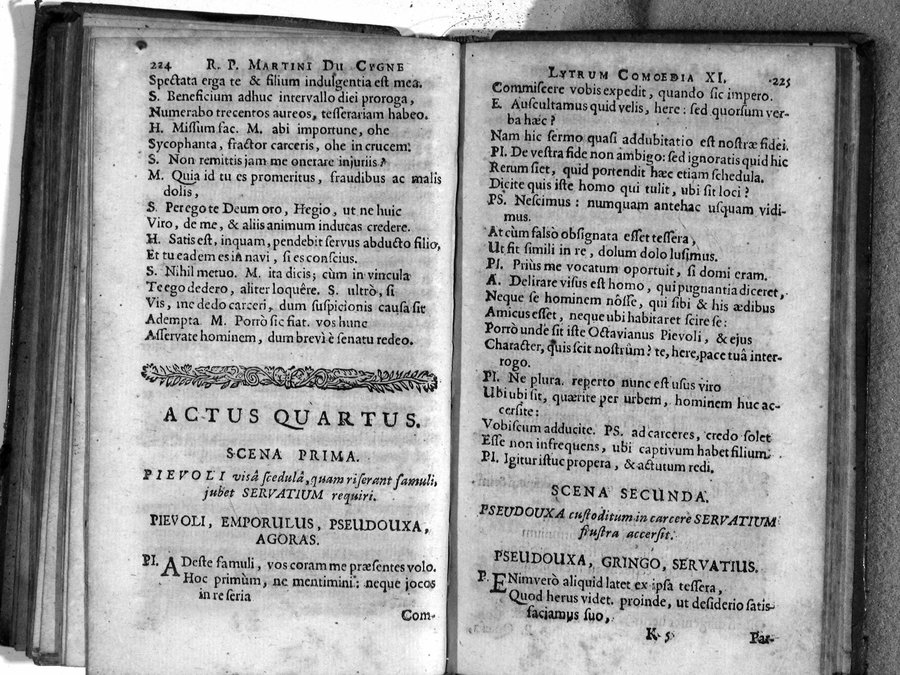 224 R. P. MARTINI DU CYGNE
Spectata erga te & filium indulgentia est mea.
S. Beneficium adhuc intervallo diei proroga,
Numerabo trecentos aureos, tesserariam habeo.
H. Missum fac. M. abi importune, ohe
Sycophanta, fractor carceris, ohe in crucem.
S. Non remittis jam me onerare injuriis?
M. Quia id tu es promeritus, fraudibus ac malis
dolis,
S. Per ego te Deum oro, Hegio, ut ne huic
Viro, de me, & aliis animum inducas credere.
H. Satis est, inquam, pendebit servus abducto filio,
Et tu eadem es in navi, si es conscius.
S. Nihil metuo. M. ita dicis; cùm in vincula
Te ego dedero, aliter loquêre. S. ultrò, si
Vis, me dedo carceri, dum suspicionis causa sit
Adempta. M. Porrò sic fiat. vos hunc
Asservate hominem, dum brevi è senatu redeo.
ACTUS QUARTUS.
SCENA PRIMA.
PIEVOLI visâ scedulâ, quam riserant famuli,
jubet SERVATIUM requiri.
PIEVOLI, EMPORULUS, PSEUDOUXA,
AGORAS.
PI. ADeste famuli, vos coram me præsentes volo.
Hoc primùm, ne mentimini: neque jocos
in re seria
Com-
LYTRUM COMOEDIA XI. 225
Commiscere vobis expedit, quando sic impero.
E. Auscultamus quid velis, here: sed quorsum ver-
ba hæc?
Nam hic sermo quasi addubitatio est nostræ fidei.
PI. De vestra fide non ambigo: sed ignoratis quid hic
Rerum siet, quid portendit hæc etiam schedula.
Dicite quis iste homo qui tulit, ubi sit loci?
PS. Nescimus: numquam antehac usquam vidi-
mus.
At cùm falsò obsignata esset tessera,
Ut fit simili in re, dolum dolo lusimus.
PI. Priùs me vocatum oportuit, si domi eram.
A. Delirare visus est homo, qui pugnantia diceret,
Neque se hominem nôsse, qui sibi & his ædibus
Amicus esset, neque ubi habitaret scire se:
Porrò unde sit iste Octavianus Pievoli, & ejus
Character, quis scit nostrûm? te, here, pace tuâ inter-
rogo.
PI. Ne plura. reperto nunc est usus viro
Ubi ubi sit, quærite per urbem, hominem huc ac-
cersite:
Vobiscum adducite. PS. ad carceres, credo solet
Esse non infrequens, ubi captivum habet filium.
PI. Igitur istuc propera, & actutum redi.
SCENA SECUNDA.
PSEUDOUXA custoditum in carcere SERVATIUM
frustra accersit.
PSEUDOUXA, GRINGO, SERVATIUS.
P. ENimverò aliquid latet ex ipsa tessera,
Quod herus videt. proinde, ut desiderio satis-
faciamus suo,
K 5 Par-